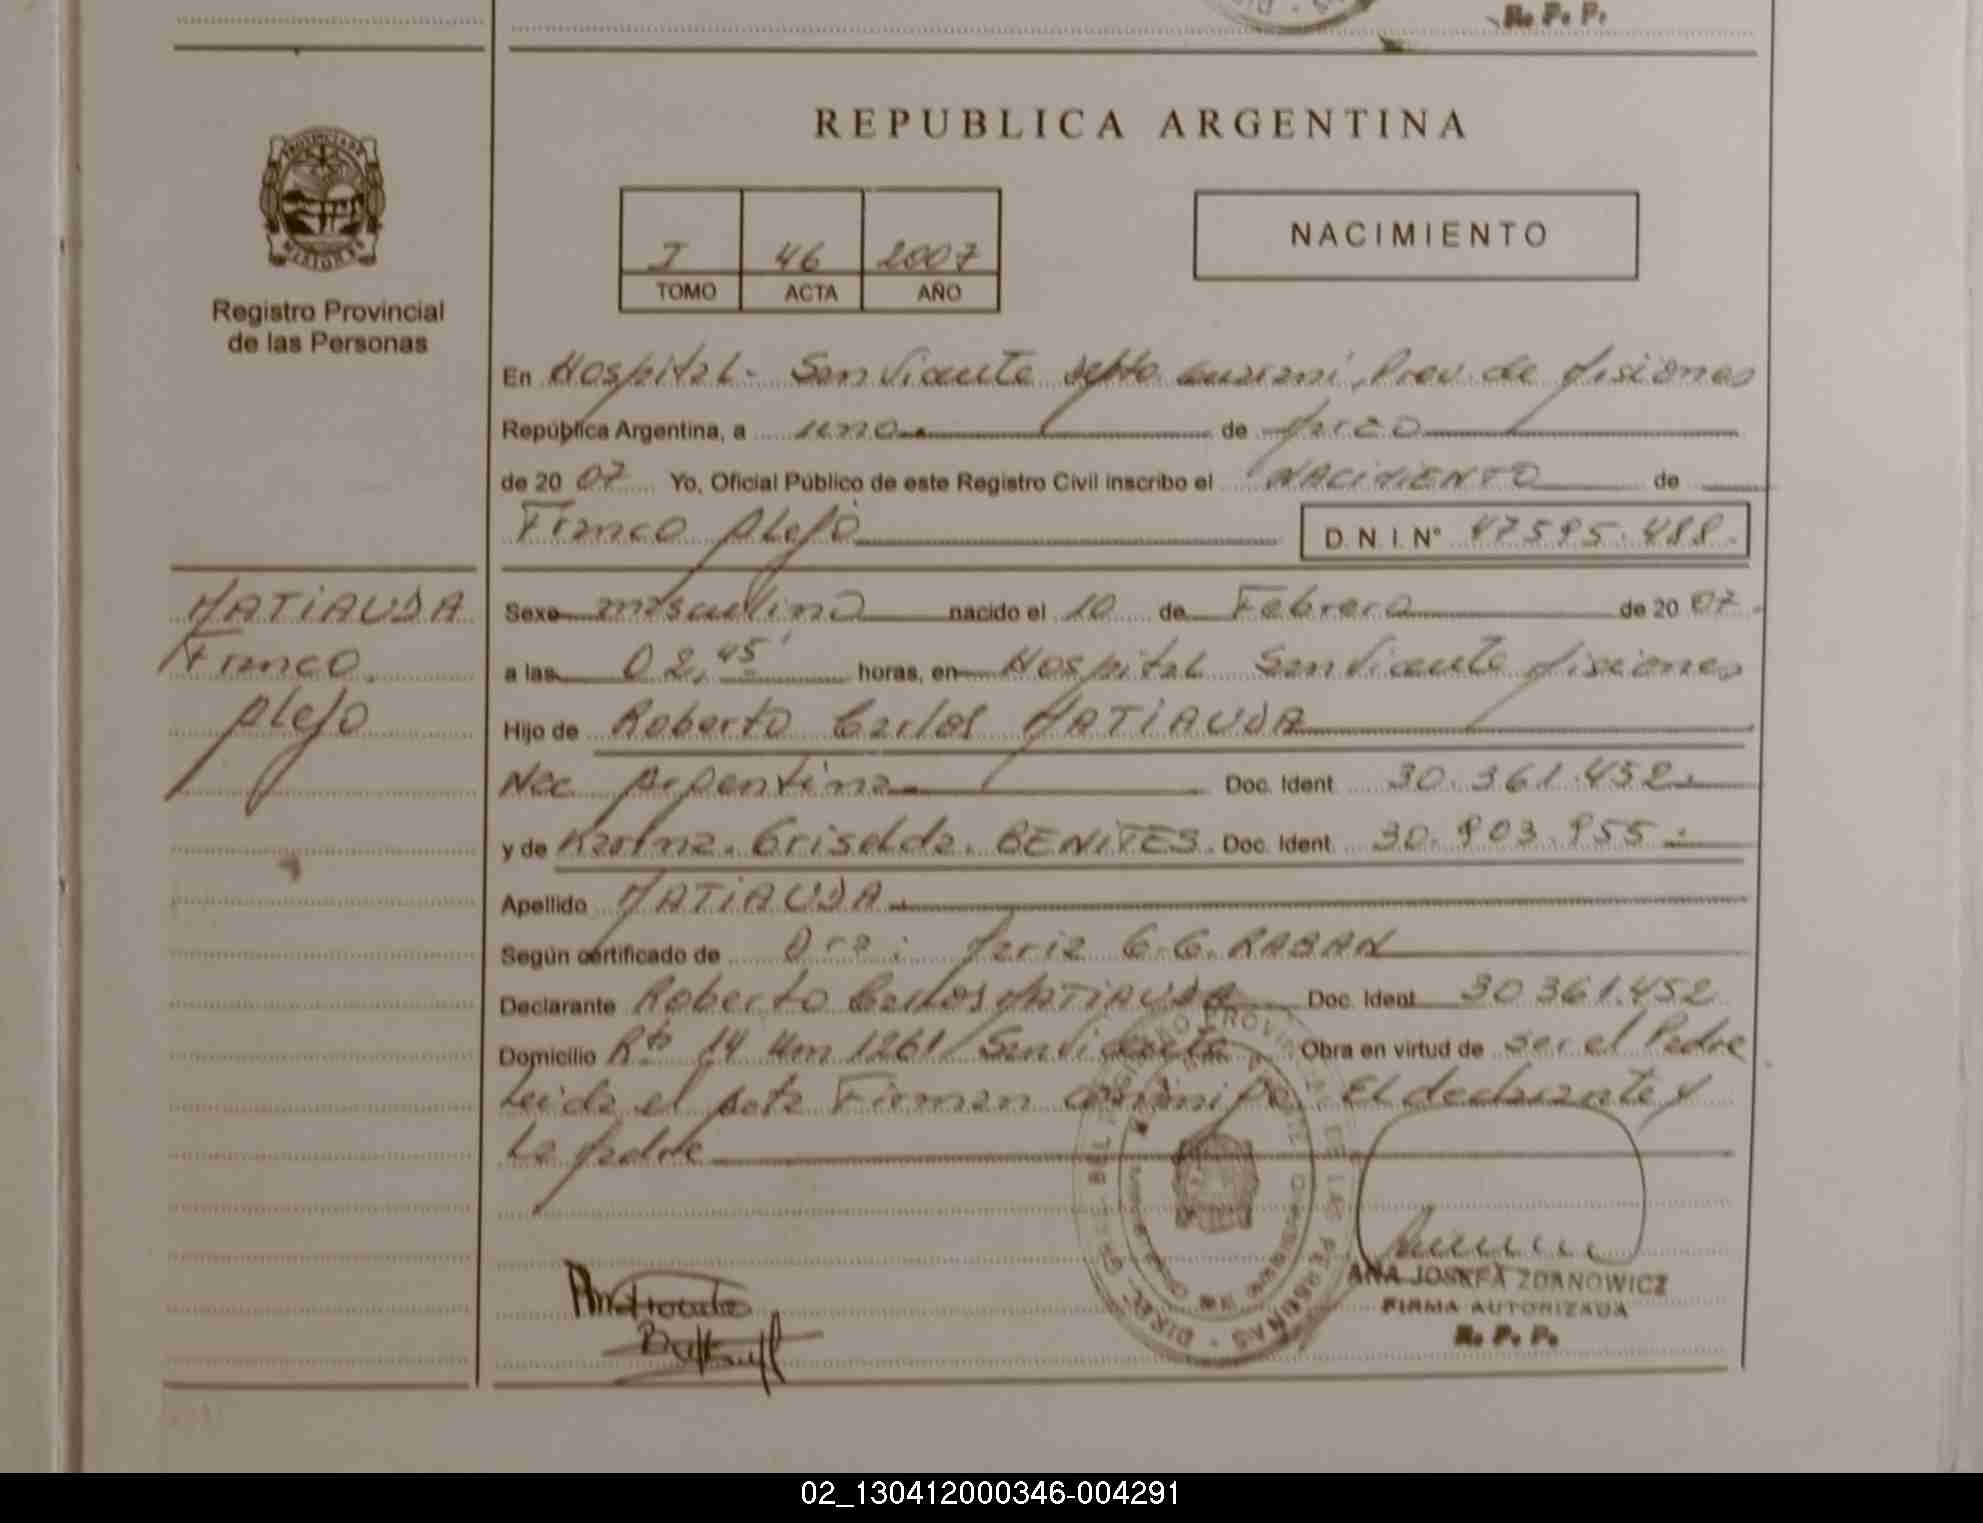 R. P. P.
REPUBLICA ARGENTINA
PROVINCIA DE MISIONES
Registro Provincial
de las Personas
I 46 2007
TOMO ACTA AÑO
NACIMIENTO
En Hospital - San Vicente Depto Guarani, Prov. de Misiones
República Argentina, a uno de Marzo
de 2007 Yo, Oficial Público de este Registro Civil inscribo el NACIMIENTO de
Franco Alejo D. N. I. N° 47595.488.
MATIAUDA
Franco
Alejo
Sexo masculino nacido el 10 de Febrero de 2007.
a las 02,45' horas, en Hospital San Vicente Misiones
Hijo de Roberto Carlos MATIAUDA
Nac Argentina Doc. Ident 30.361.452.
y de Karina. Griselda. BENITES. Doc. Ident. 30.903.955.
Apellido MATIAUDA.
Según certificado de Dra: Maria G.G. RABAN
Declarante Roberto Carlos MATIAUDA Doc. Ident 30361.452
Domicilio Rta 14 Km 1261 San Vicente Obra en virtud de ser el Padre
Leida el Acta Firman conmigo. El declarante y
La Madre
ANA JOSEFA ZDANOWICZ
FIRMA AUTORIZADA
R. P. P.
02_130412000346-004291